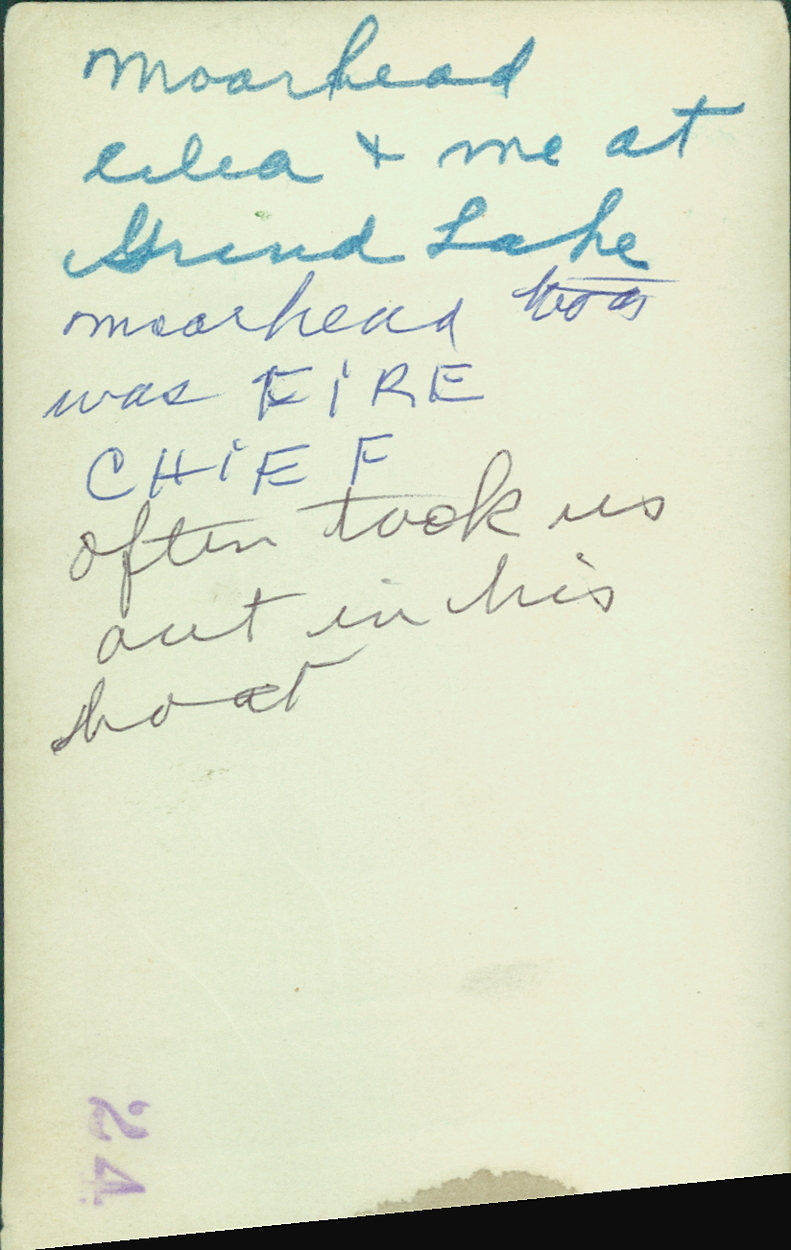 moorhead
& me at
Lake
moorhead was
was FiRE
CHiEF
often took us
out in his
boat
24